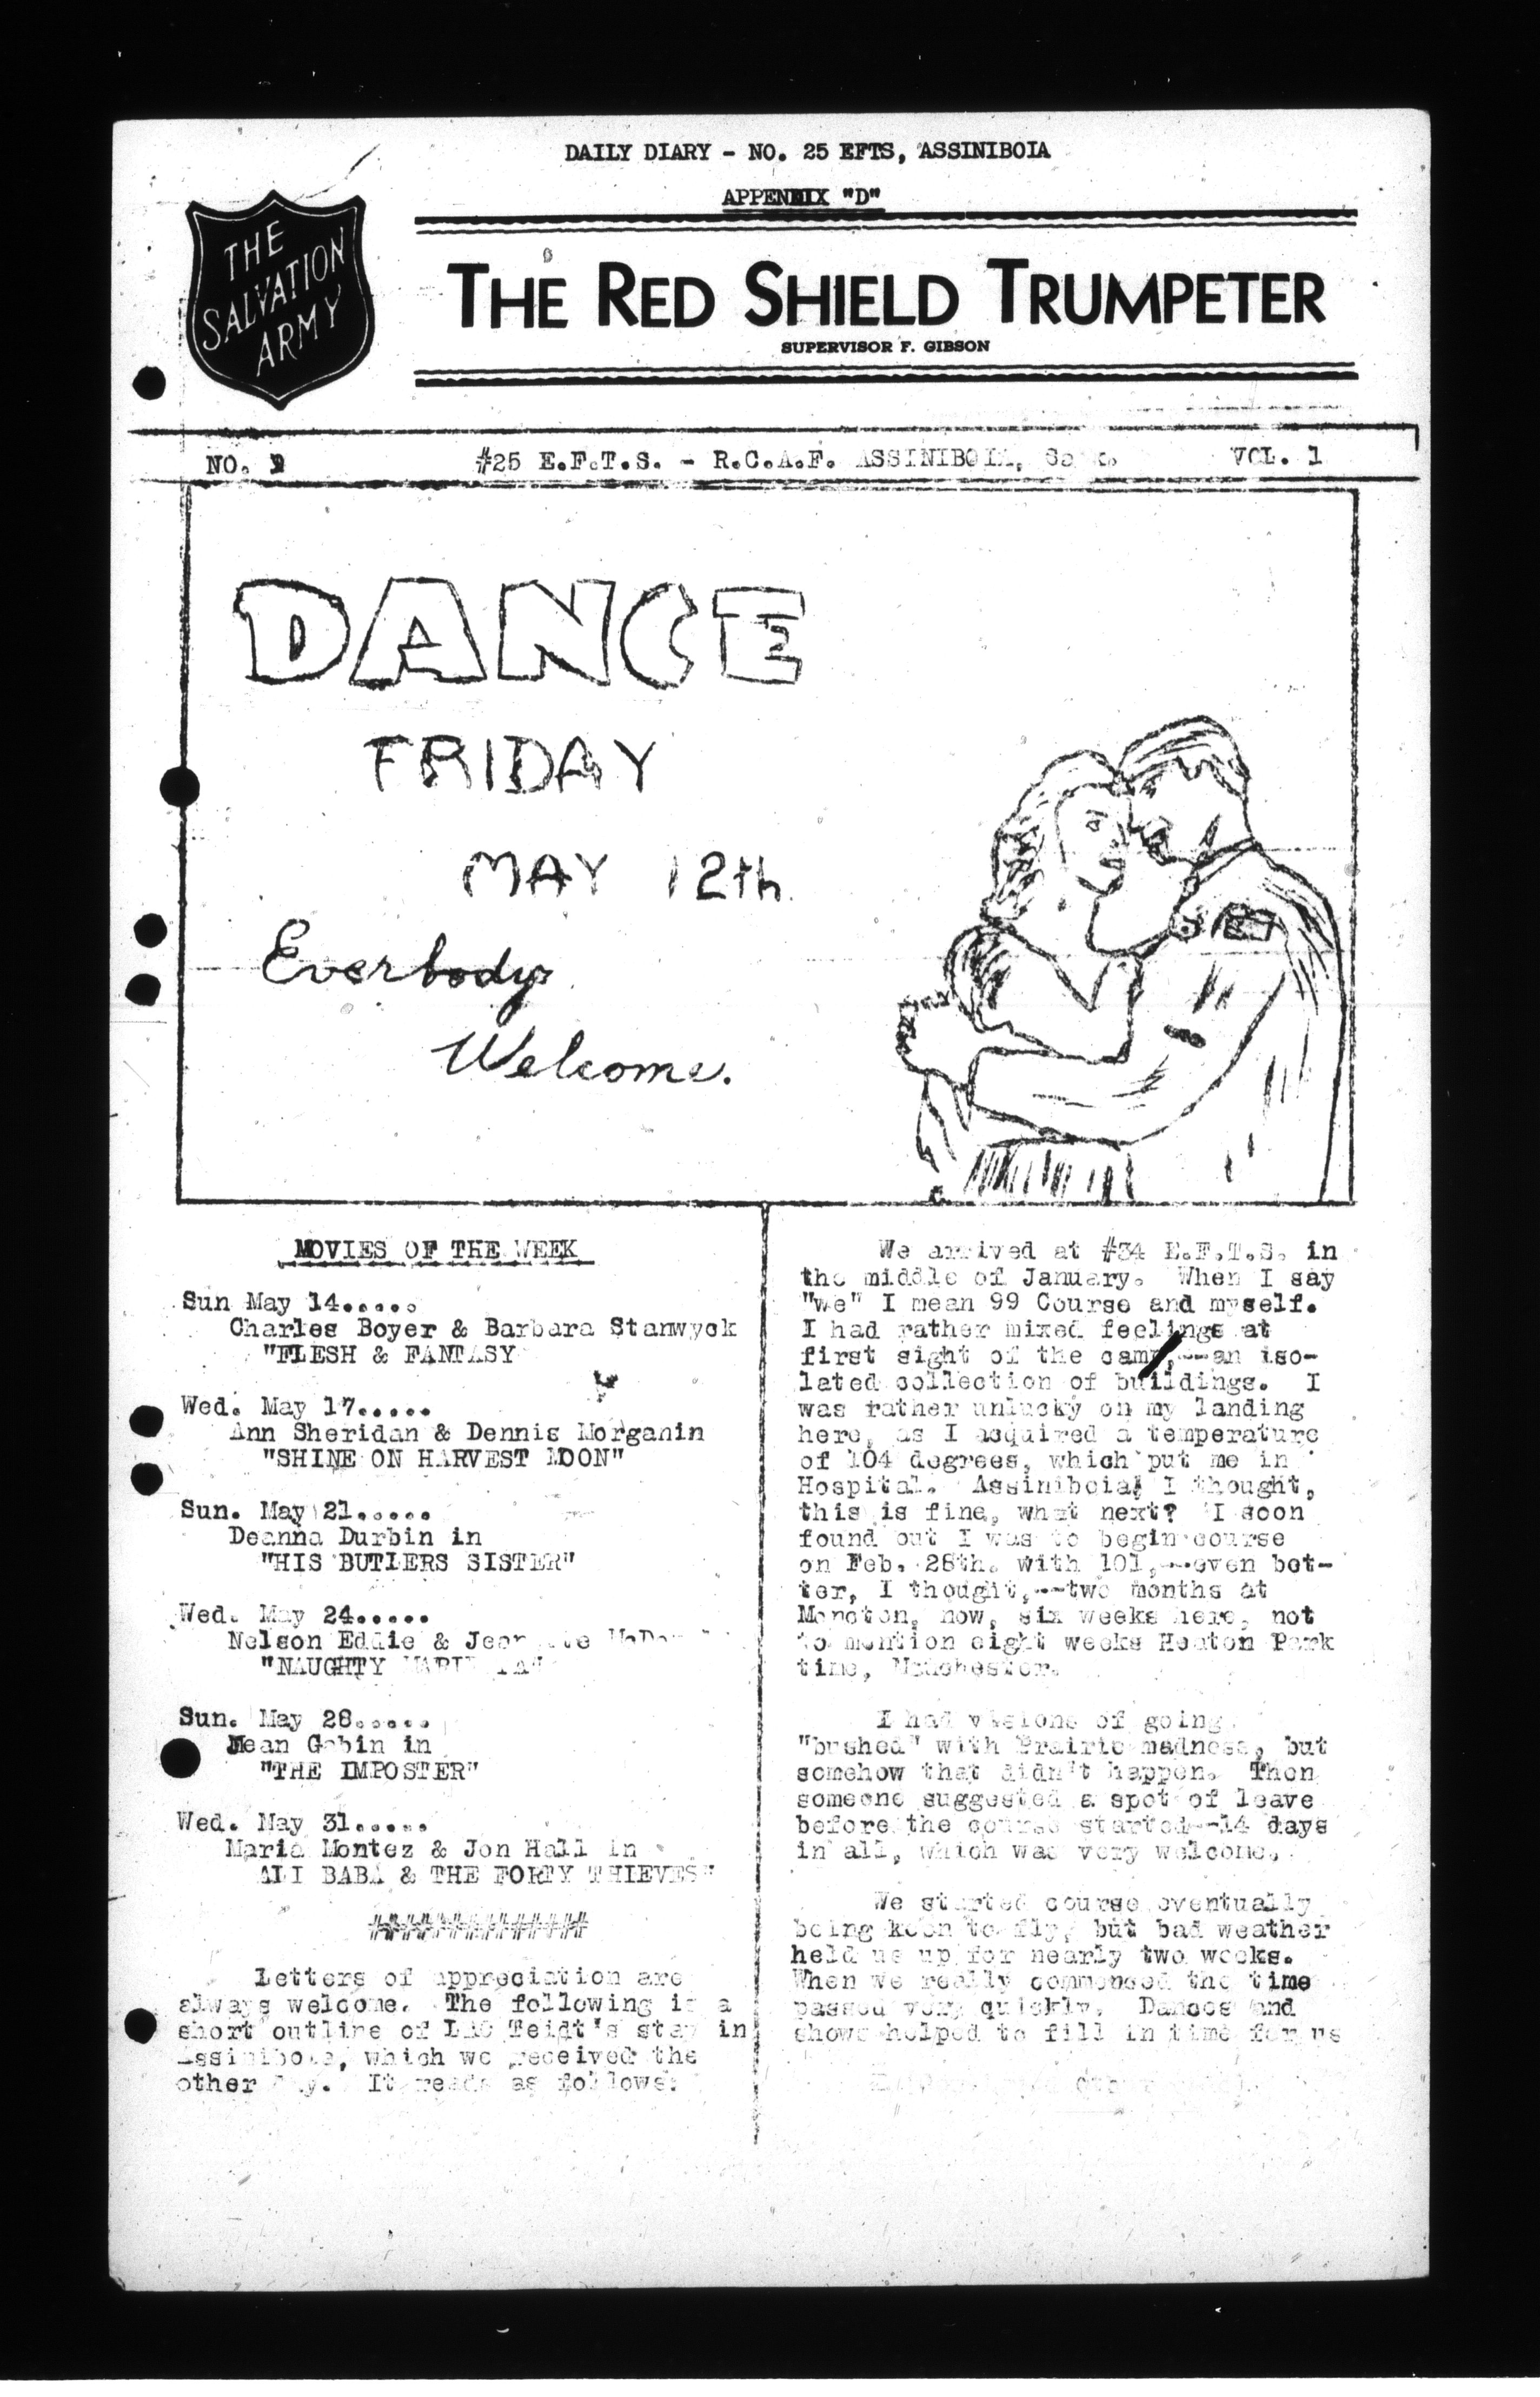 DAILY DIARY - NO. 25 EFTS, ASSINIBOIA
APPENDIX "D"
THE
SALVATION
ARMY
THE RED SHIELD TRUMPETER
SUPERVISOR F. GIBSON
NO. #25 E.F.T.S. - R.C.A.F. ASSINIBOIA, Sask. VOL. 1
DANCE
FRIDAY
MAY 12th.
Everbody
Welcome.
MOVIES OF THE WEEK
Sun May 14.....
Charles Boyer & Barbara Stanwyck
"FLESH & FANTASY
Wed. May 17.....
Ann Sheridan & Dennis Morganin
"SHINE ON HARVEST MOON"
Sun. May 21.....
Deanna Durbin in
"HIS BUTLERS SISTER"
Wed. May 24.....
Nelson Eddie &
"NAUGHTY
Sun. May 28.....
Jean Gabin in
"THE IMPOSTER"
Wed. May 31.....
Maria Montez & Jon Hall in
ALI BABA & THE FORTY THIEVES"
#############
Letters of appreciation are
always welcome. The following is a
short outline of LAC Teidt's stay in
Assiniboia, which we received the
other day. It reads as follows:
We arrived at #34 E.F.T.S. in
the middle of January. When I say
"we" I mean 99 Course and myself.
I had rather mixed feelings at
first sight of the camp,--an iso-
lated collection of buildings. I
was rather unlucky on my landing
here, as I acquired a temperature
of 104 degrees, which put me in
Hospital. Assiniboia! I thought,
this is fine, what next? I soon
found out I was to begin course
on Feb. 28th. with 101,--even bet-
ter, I thought,--two months at
Moncton, now, six weeks here, not
to mention eight weeks Heaton Park
time, Manchester.
I had visions of going
"bushed" with Prairie madness, but
somehow that didn't happen. Then
someone suggested a spot of leave
before the course started--14 days
in all, which was very welcome.
We started course eventually
being keen to fly, but bad weather
held us up for nearly two weeks.
When we really commenced the time
passed very quickly. Dances and
shows helped to fill in time for us